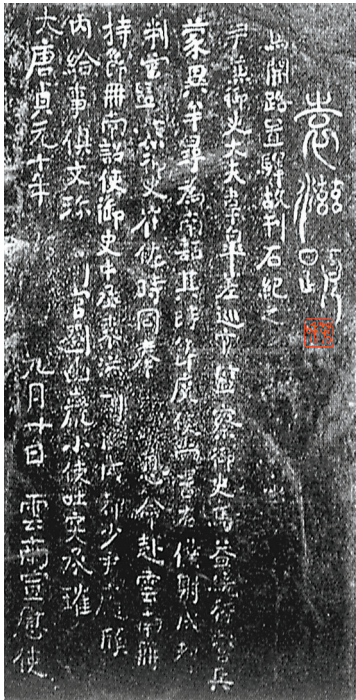 大唐貞元十年九月廿日雲南宣慰使
内給事俱文珍判官劉幽巖小使吐突承璀
持節冊南詔使御史中丞袁滋副使成都少尹龐頎
判官監察御史崔佐時同奉恩命赴雲南冊
蒙異牟尋為南詔其時節度使尚書右僕射成都
尹兼御史大夫韋皋差巡官監察御史馬益統行營兵
馬開路置驛故刊石紀之
袁滋題